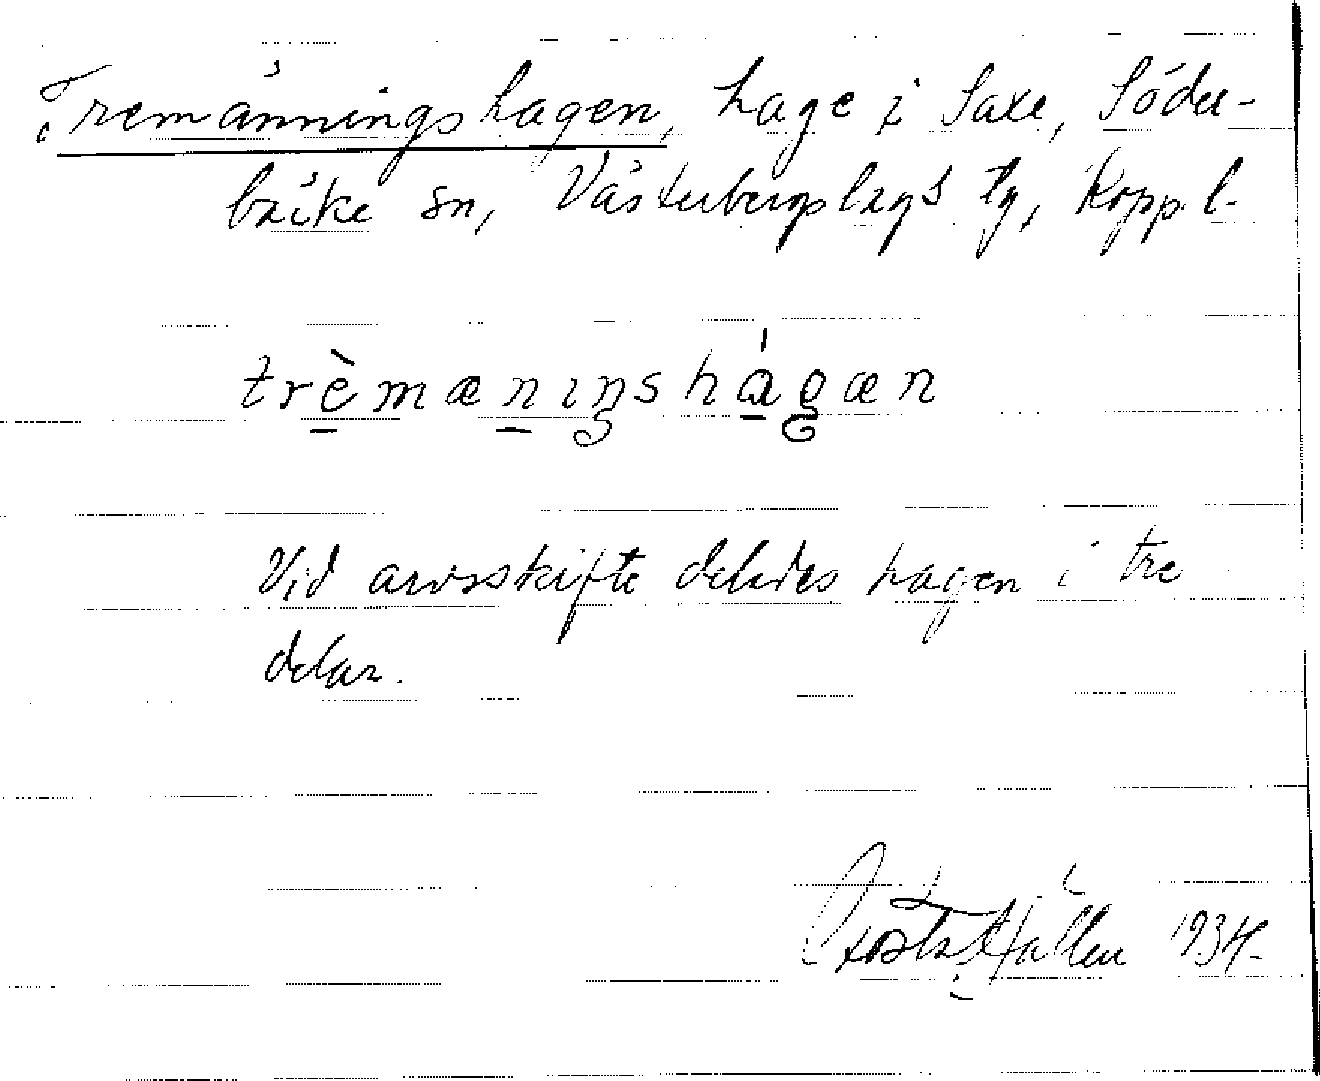 Tremänningshagen, hage i Saxe, Söder-
bärke sn, Västerbergslags tg, Koppl.
trèmæninshágæn
Vid arvsskifte delades hagen i tre
delar.
Gösta Hallén 1934.